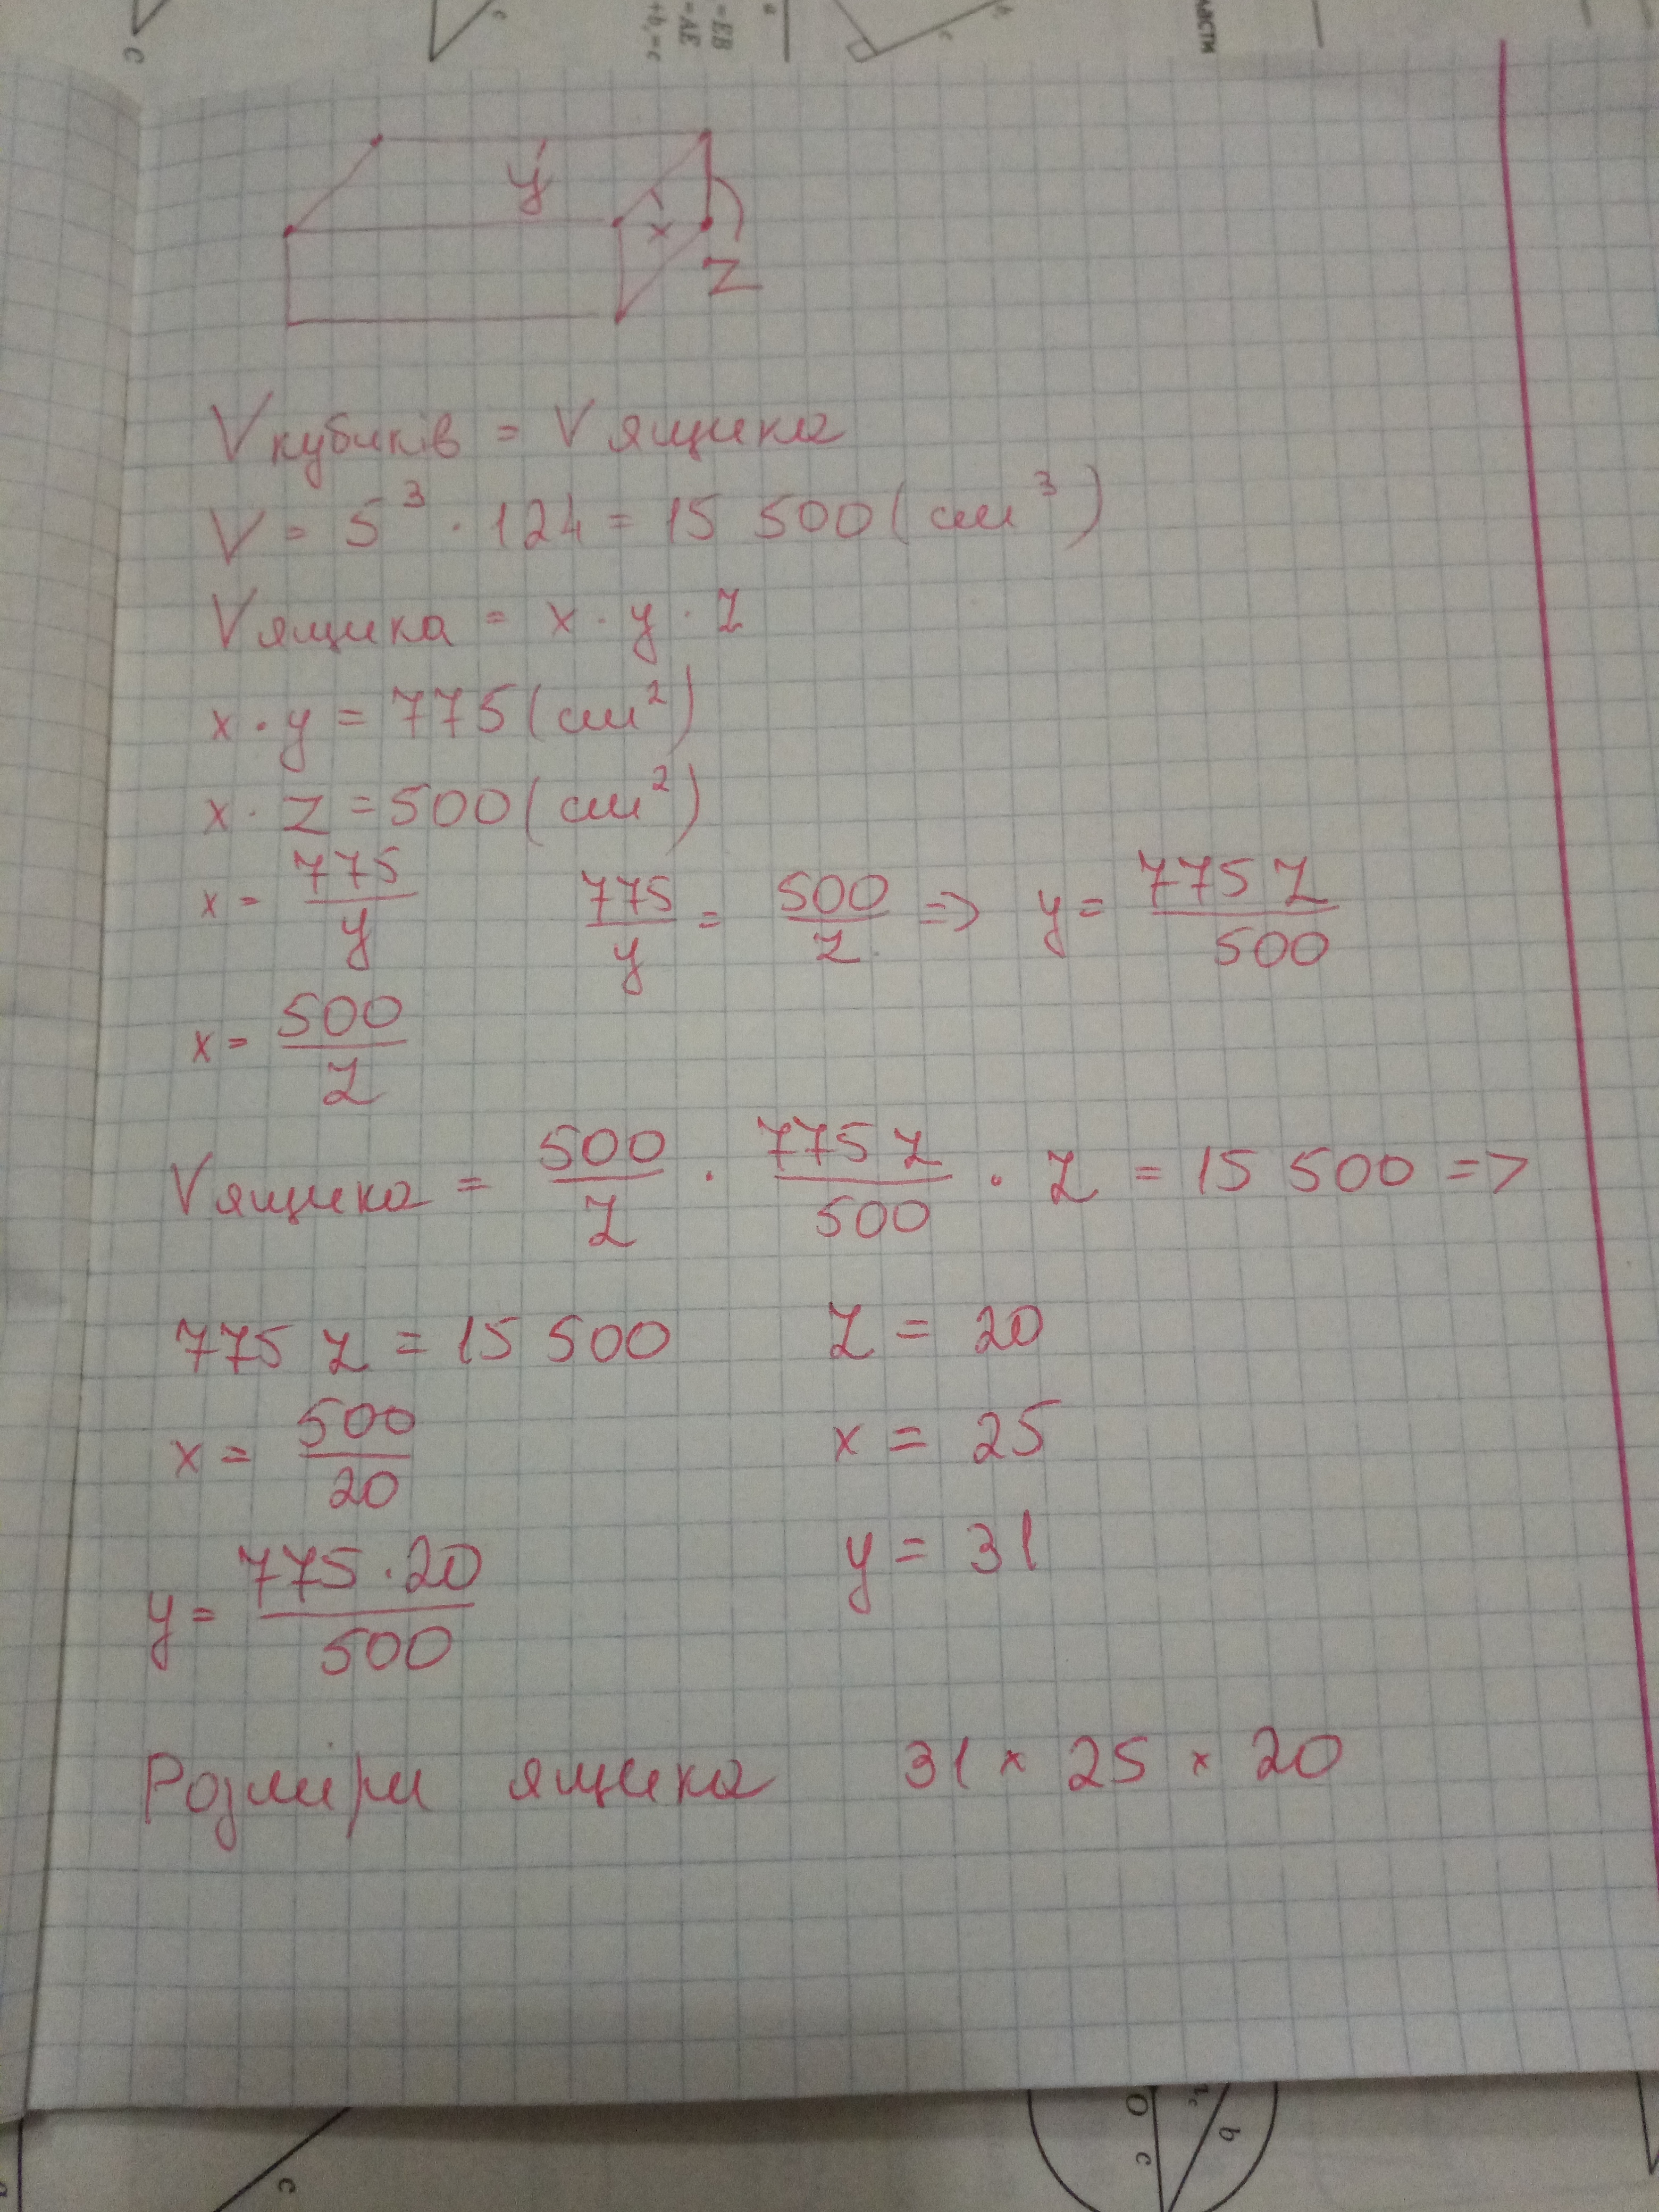 c
c
=EB
=AE
+b꜀=c
a
c
ласти
y
x
z
Vкубиків = Vящика
V = 5³ · 124 = 15 500 (см³)
Vящика = x · y · z
x · y = 775 (см²)
x · z = 500 (см²)
x = 775/y 775/y = 500/z => y = 775 z/500
x = 500/z
Vящика = 500/z · 775 z/500 · z = 15 500 =>
775 z = 15 500 z = 20
x = 500/20 x = 25
y = 775 · 20/500 y = 31
Розміри ящика 31 × 25 × 20
O
c
b
c